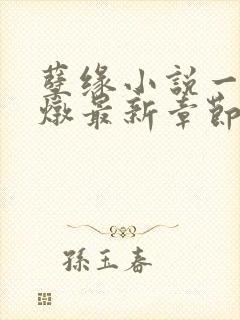 孽缘小説一
燉最新章節
孫玉春